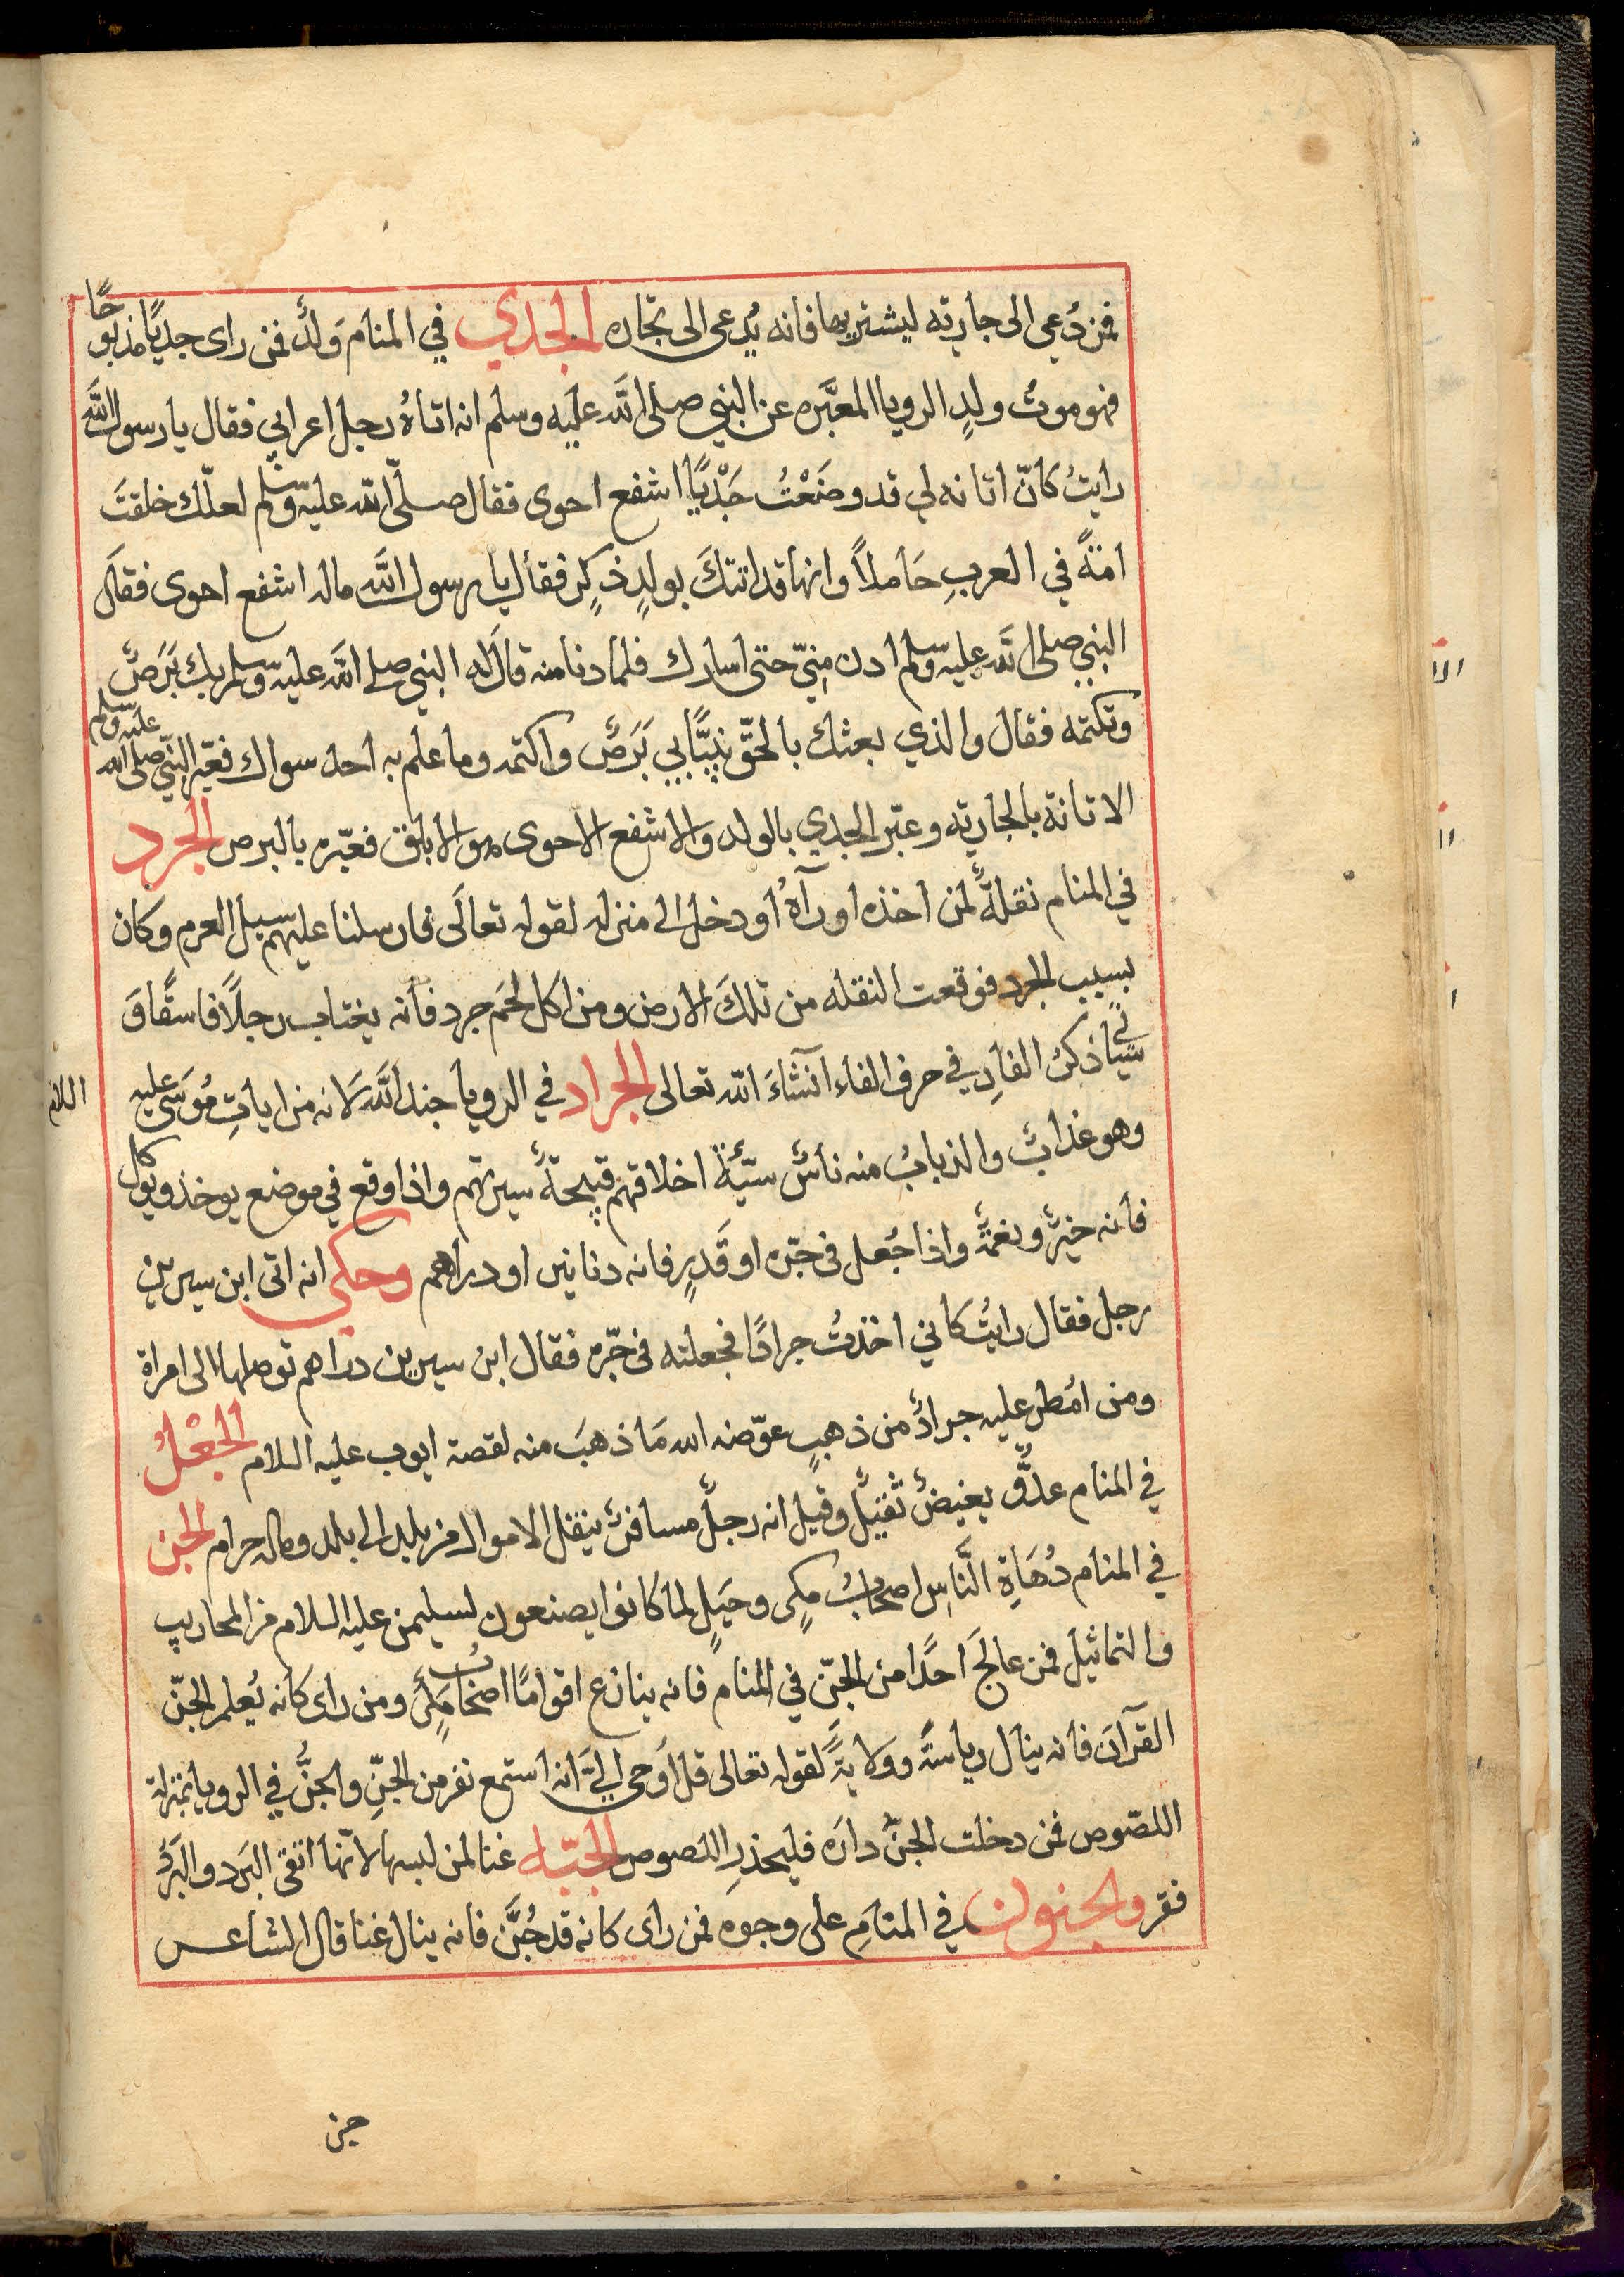 فمن دُعي الى جارية ليشتريها فانه يُدعى الى تجاره الجدي في المنام وَلدٌ فمن راى جديًا مذبوحًا
فهو موتُ ولدٍ الرويا المعبَّره عن النبي صلى الله عليه وسلم انه اتاهُ رجل اعرابي فقال يا رسول الله
رايتُ كانّ اتانه لي قد وضَعْتُ جَدْيًا اشفع احوى فقال صلى الله عليه وسلم لعلّك خلقتَ
امَةً في العربِ حَاملاً وانها قد اتتكَ بولدٍ ذكرٍ فقال يا رسول الله ماله اشفع احوى فقال
النبي صلى الله عليه وسلم ادن مِنيّ حتى اسارك فلما دنا منه قالَ له النبي صلى الله عليه وسلم بك بَرَصٌ
وتكتمه فقال والذي بعثك بالحقّ نبيًّا بي بَرَصٌ واكتمه وما علم به احد سواك فعبّر النبي صلى الله عليه وسلم
الاتانة بالجارية وعبّر الجدي بالولد والاشفع الاحوى هو الابلق فعبّره بالبرص الجرد
في المنام نقلةٌ لمن اخذه او رآهُ أو دخل الى منزله لقوله تعالَى فارسلنا عليهم سيل العرم وكان
بسبب الجرد فوقعت النقله من تلكَ الارض ومن اكل لحَم جرد فانه يغتاب رجلًا فاسقًا وَ
سياتي ذكرُ الفارِ في حرف الفاء انشاءَ الله تعالى الجراد في الرويا جند الله لَانه من اياتِ مُوسَى عليه السلام
وهو عذابٌ والذبابُ منه ناسٌ سيّئةٌ اخلاقهم قبيحةٌ سيرتهم واذا وقع في موضع يوخذ ويوكل
فانه خيرٌ ونغمةٌ واذا جُعل في جرّه او قَدرٍ فانه دنانير او دراهم وحكى انه اتى ابن سيرين
رجل فقال رايتُ كاني اخذتُ جرادًا فجعلته في جرّه فقال ابن سيرين دراهم توصلها الى امراة
ومن امُطر عليه جرادٌ من ذهبٍ عوّضه الله مَا ذهبَ منه لقصة ايوب عليه السلام الجُعْلُ
في المنام عدوٌّ بغيضٌ ثقيلٌ وقيل انه رجلٌ مسافرٌ ينقل الاموال من بلد الى بلد وماله حرام الجن
في المنام دُهَاةِ النَّاسِ اصحابُ مكرٍ وحيَلٍ لما كانوا يصنعون لسليمن عليه السلام من المحاريب
والتماثيل فمن عالجَ احدًا من الجنّ في المنام فانه ينازع اقوامًا اصحابُ مكرٍ ومن راى كانه يُعلم الجنّ
القرآن فانه ينال رياسةً وولايةً لقوله تعالى قل اُوحي اليَّ انه استمع نفر من الجنّ والجنُّ في الرويا بمنزلة
اللصّوص فمن دخلت الجنّ دارَه فليحذرِ اللصوص الجبّه غنا لمن لبسها لانّها اتقى البَرد والبَرَدُ
فقر والجنون في المنامِ على وجوه فمن راى كانه قد جُنَّ فانه ينال غنا قال الشاعر
جن